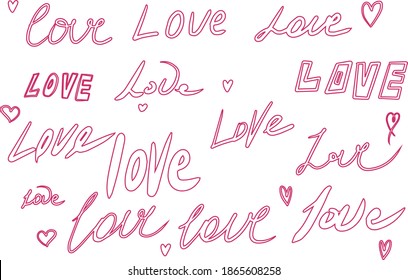 love LOVE Love
LOVE Love LOVE
Love love Love Love
Love love love love
shutterstock.com · 1865608258